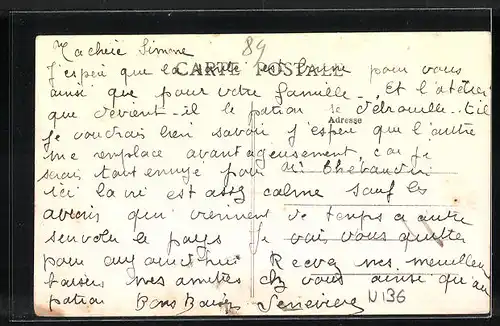 Ma chérie Simone 84
CARTE POSTALE
J'espere que la santé est bonne pour vous
ainsi que pour votre famille. Et l'atelier
que devient-il le patron se debrouille-t-il
Adresse
Je voudrais bien savoir j'espere que l'autre
me remplace avantageusement, car je
serais tout ennuye pour
ici la vie est assez calme sauf les
avions qui viennent de temps a autre
survoler le pays Je vais vous quitter
pour aujourd'hui Recevez mes meilleurs
baisers mes amities chez vous ainsi qu'au
patron Bons Baisers Genevieve
N 136